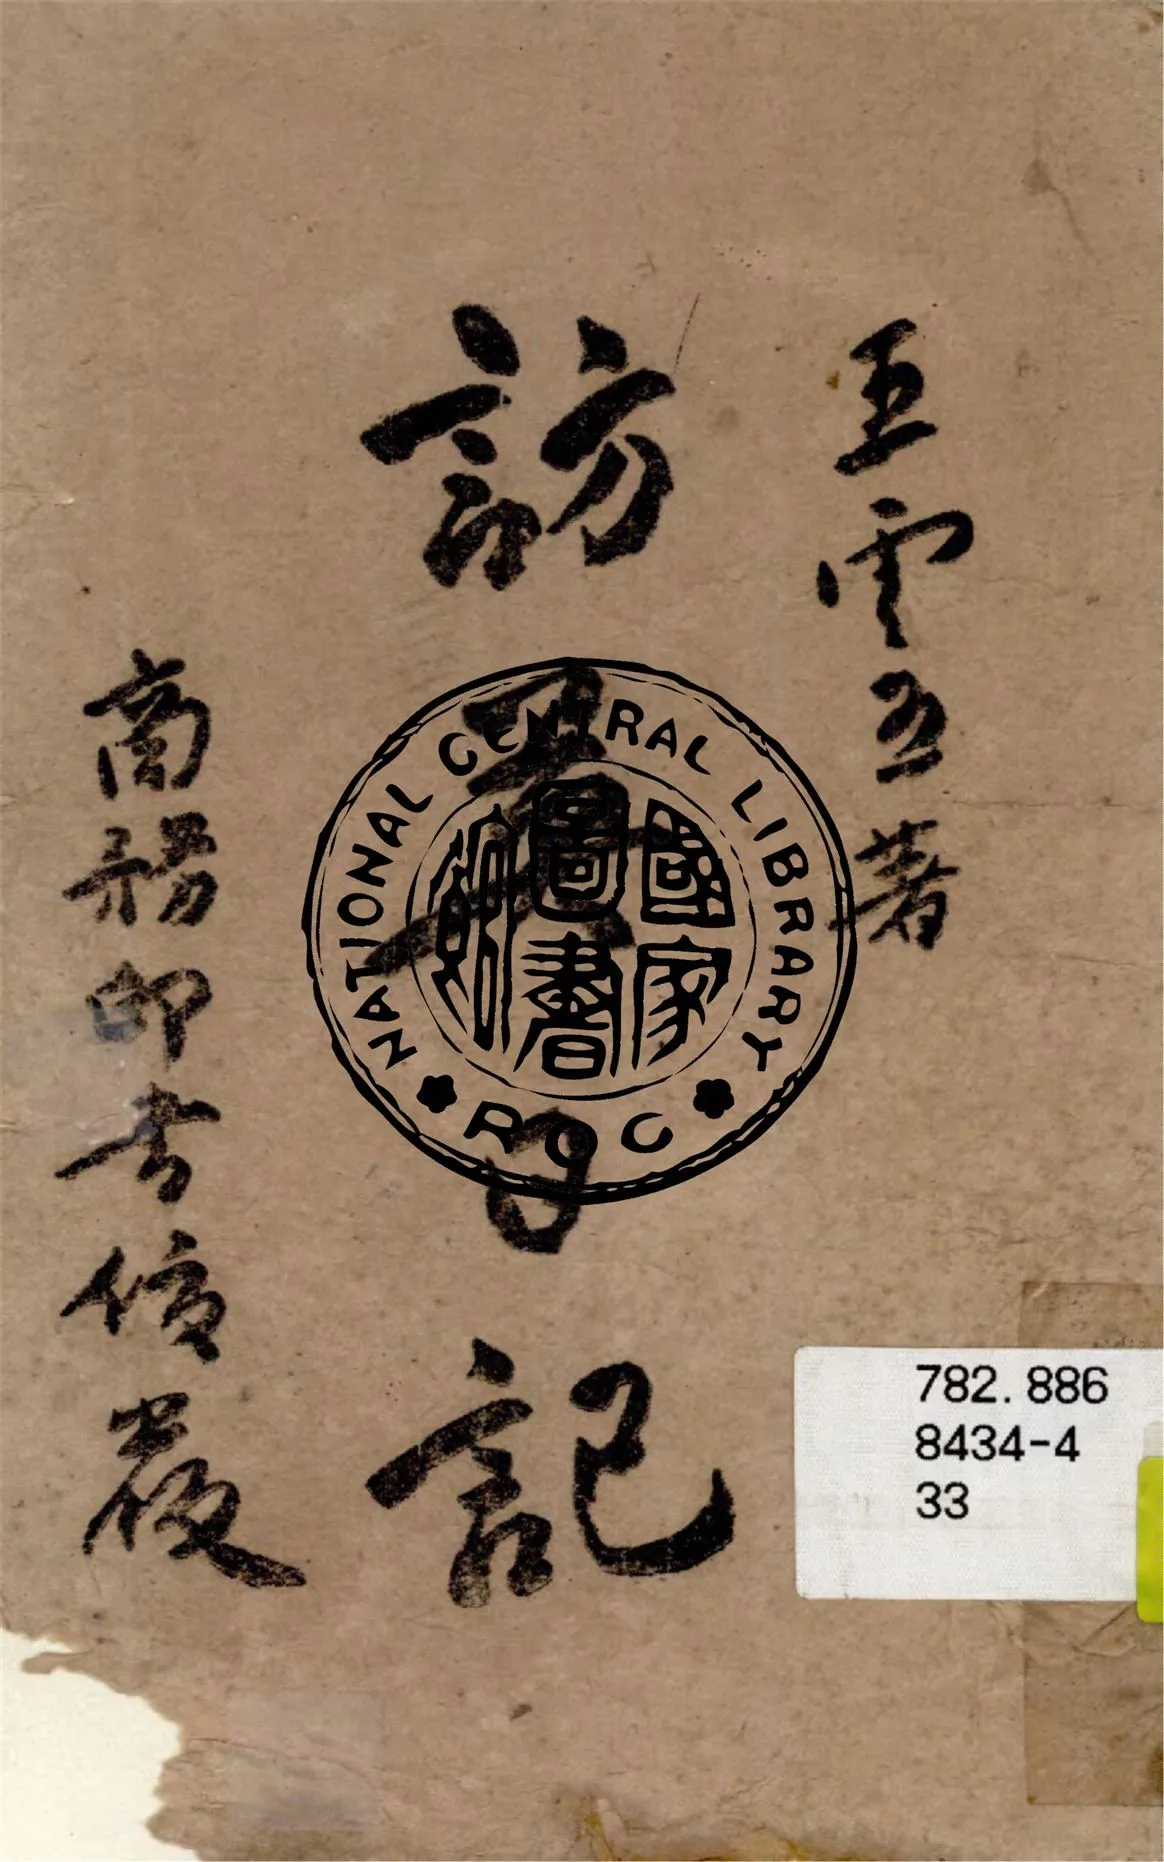 王雲五著
訪英日記
商務印書館印行
NATIONAL CENTRAL LIBRARY
國家圖書館
ROC
782.886
8434-4
33